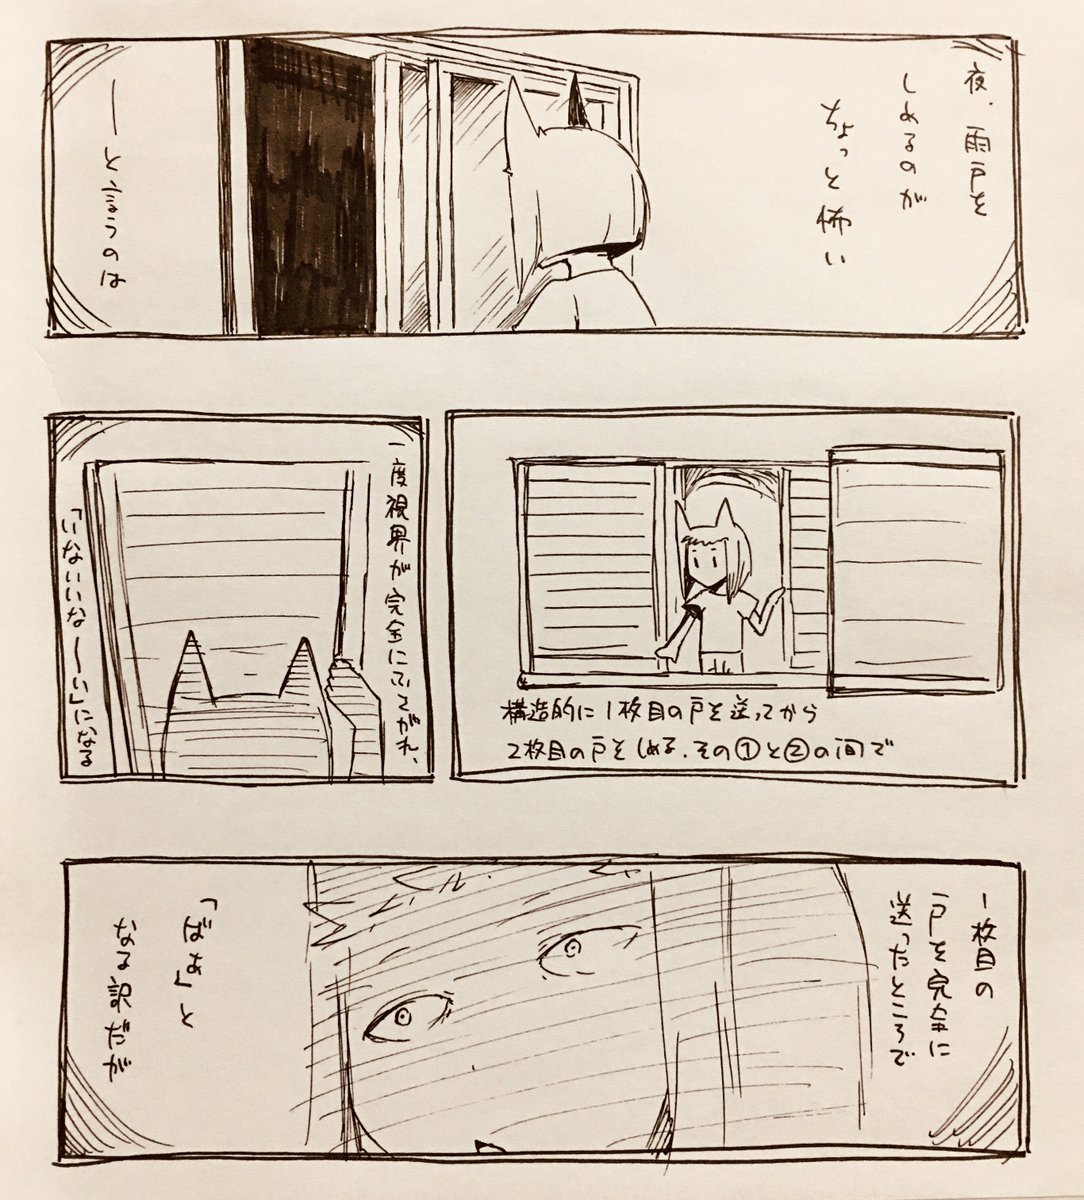 夜、雨戸を
しめるのが
ちょっと怖い
――と言うのは
構造的に1枚目の戸を送ってから
2枚目の戸をしめる、その①と②の間で
一度視界が完全にふさがれ、
「いないいな〜い」になる
1枚目の
戸を完全に
送ったところで
「ばぁ」と
なる訳だが